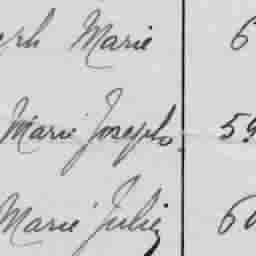 Marie 6
Marie Joseph. 59
Marie Julie 60